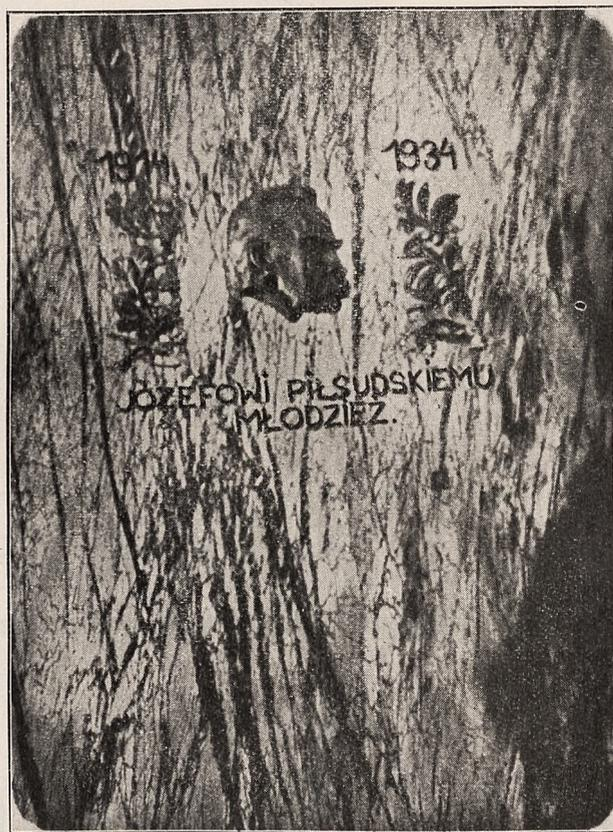 1914
1934
JÓZEFOWI PIŁSUDSKIEMU
MŁODZIEŻ.